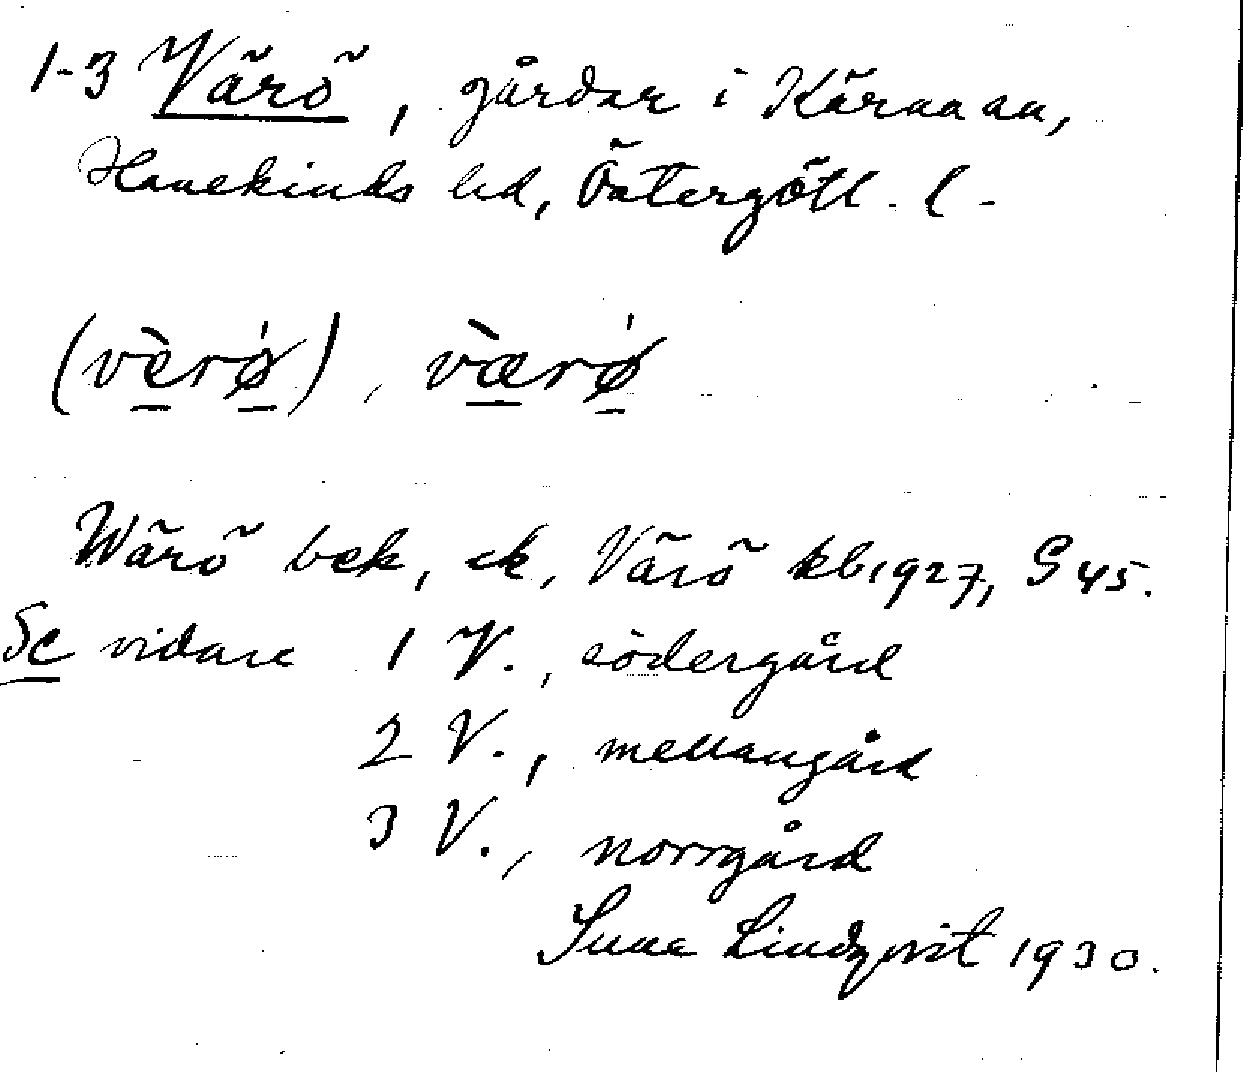 1-3 Värö, gårdar i Kärna sn,
Hanekinds hd, Östergötl. l.
(vèrø̀), væ̀rø̀
Wärö bek, ek, Värö kb 1927, G 45.
Se vidare 1 V., södergård
2 V., mellangård
3 V., norrgård
Sune Lindqvist 1930.